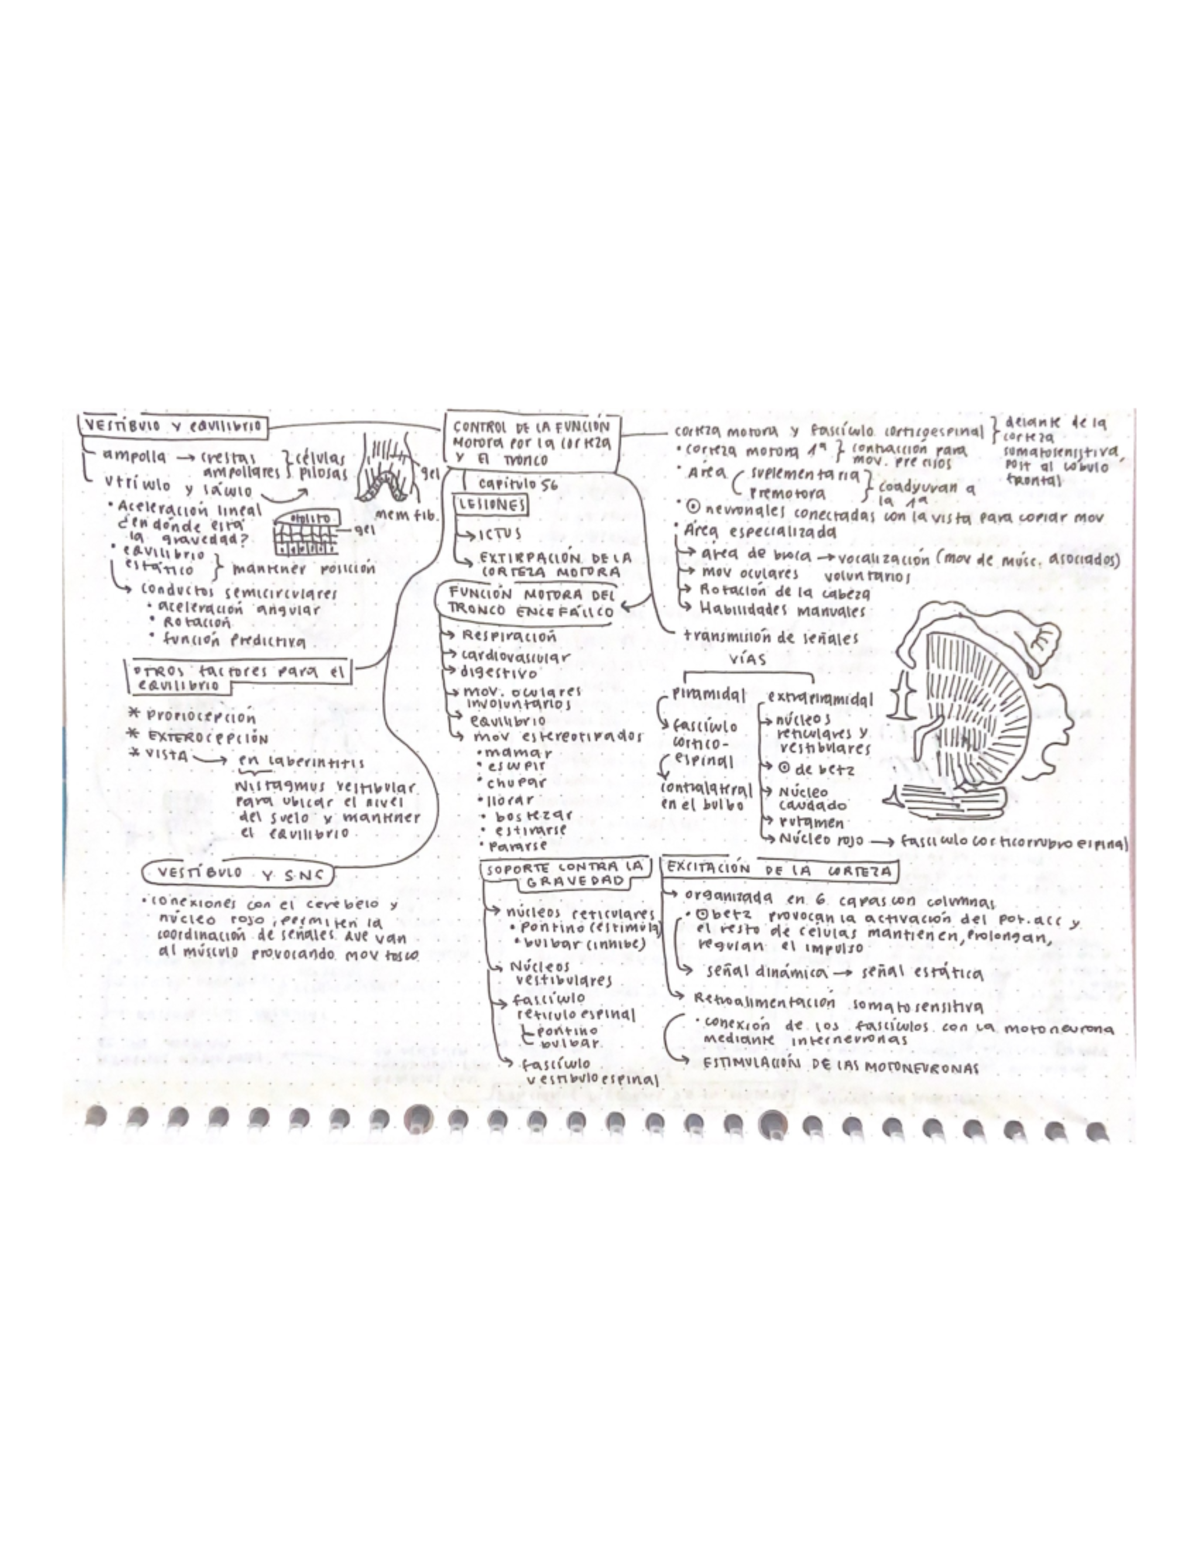 VESTÍBULO Y EQUILIBRIO
ampolla → crestas ampollares } células pilosas
utrículo y sáculo
• Aceleración lineal
¿en dónde está
la gravedad?
• equilibrio
estático } mantener posición
→ conductos semicirculares
• aceleración angular
• Rotación
• función predictiva
gel
mem fib.
otolito
gel
OTROS factores para el
equilibrio
* PROPIOCEPCIÓN
* EXTEROCEPCIÓN
* VISTA → en laberintitis
Nistagmus vestibular
para ubicar el nivel
del suelo y mantener
el equilibrio
VESTÍBULO Y SNC
• conexiones con el cerebelo y
núcleo rojo, permiten la
coordinación de señales que van
al músculo provocando mov tosco
CONTROL DE LA FUNCIÓN
Motora por la corteza
Y EL TRONCO
capítulo 56
LESIONES
→ ICTUS
→ EXTIRPACIÓN DE LA
CORTEZA MOTORA
FUNCIÓN MOTORA DEL
TRONCO ENCEFÁLICO
→ Respiración
→ cardiovascular
→ digestivo
→ mov. oculares
involuntarios
→ equilibrio
→ mov estereotipados
• mamar
• escupir
• chupar
• llorar
• bostezar
• estirarse
• pararse
SOPORTE CONTRA LA
GRAVEDAD
→ núcleos reticulares
• Pontino (estimula)
• bulbar (inhibe)
→ Núcleos
vestibulares
→ fascículo
reticuloespinal
pontino
bulbar
→ fascículo
vestibuloespinal
corteza motora y fascículo corticoespinal } delante de la
corteza
somatosensitiva,
post al lóbulo
frontal
• corteza motora 1ª } contracción para
mov. precisos
• Área ( suplementaria
premotora } coadyuvan a
la 1ª
• ⊙ neuronales conectadas con la vista para copiar mov
• Área especializada
→ área de broca → vocalización (mov de músc. asociados)
→ mov oculares voluntarios
→ Rotación de la cabeza
→ Habilidades manuales
transmisión de señales
VÍAS
piramidal
→ fascículo
cortico-
espinal
contralateral
en el bulbo
extrapiramidal
→ núcleos
reticulares y
vestibulares
→ ⊙ de betz
→ Núcleo
caudado
→ putamen
→ Núcleo rojo → fascículo corticorrubroespinal
EXCITACIÓN DE LA CORTEZA
→ organizada en 6 capas con columnas
• ⊙ betz provocan la activación del pot. acc y
el resto de células mantienen, prolongan,
regulan el impulso
→ señal dinámica → señal estática
→ Retroalimentación somatosensitiva
• conexión de los fascículos con la motoneurona
mediante interneuronas
→ ESTIMULACIÓN DE LAS MOTONEURONAS